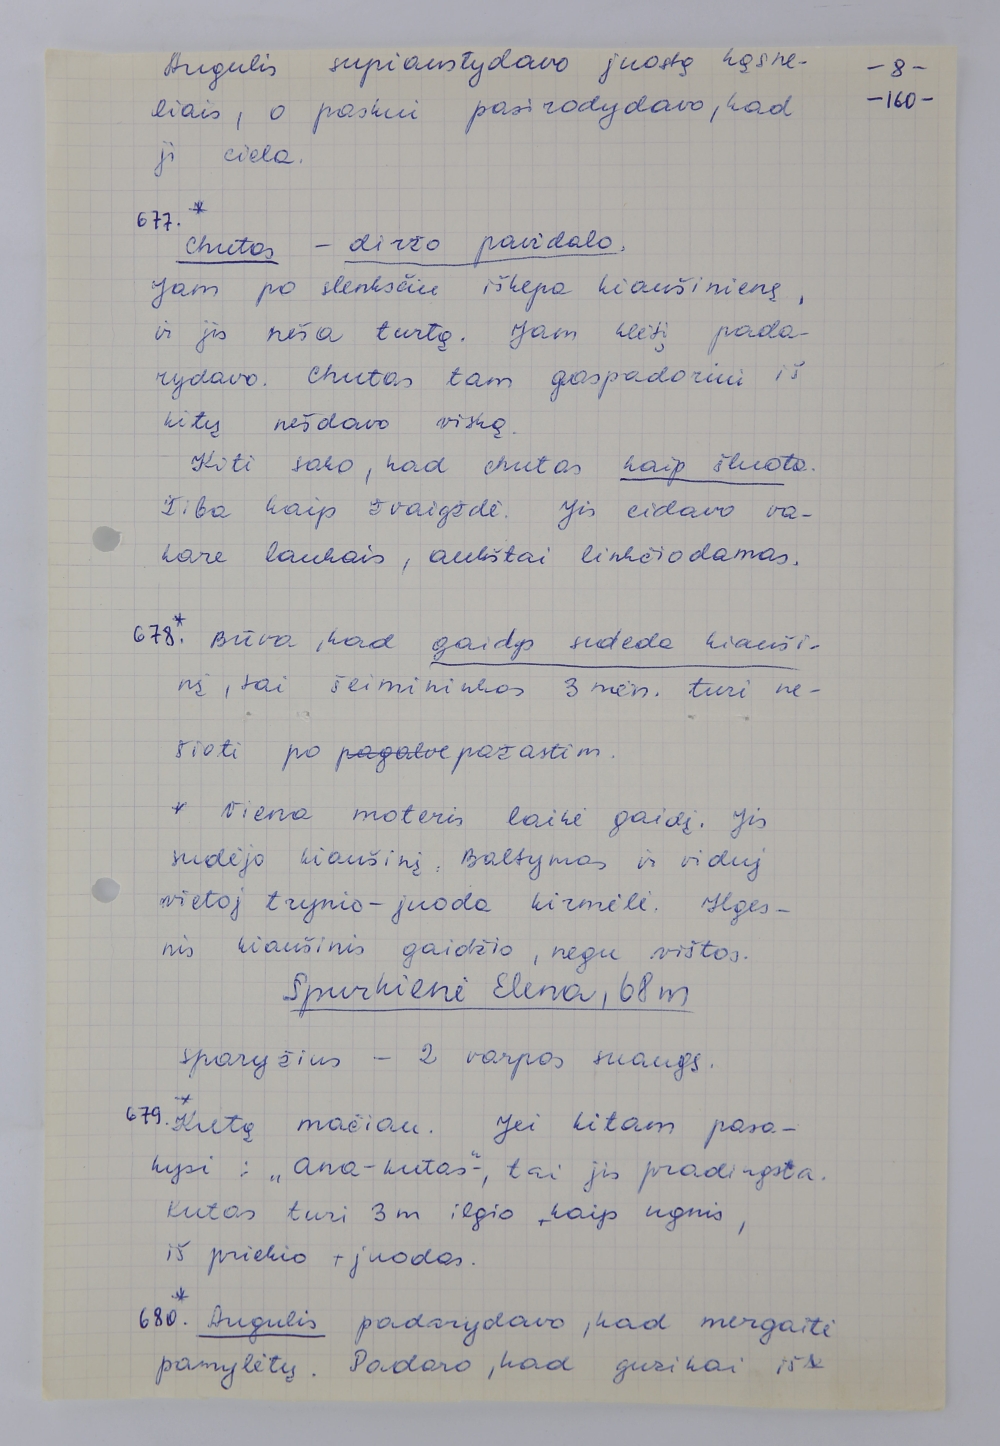 Angulis supiaustydavo juostą kąsne-
liais, o paskui pasirodydavo, kad
ji ciela.
-8-
-160-
677.*
Chutas - diržo pavidalo.
Jam po slenksčiu iškepa kiaušinienę,
ir jis neša turtą. Jam klėtį pada-
rydavo. Chutas tam gaspadoriui iš
kitų nešdavo viską.
Kiti sako, kad chutas kaip šluota.
Žiba kaip žvaigždė. Jis eidavo va-
kare laukais, aukštai linkčiodamas.
678.* Būva, kad gaidys sudeda kiauši-
nį, tai šeimininkas 3 mėn. turi ne-
šioti po pagalve pažastim.
* Viena moteris laikė gaidį. Jis
sudėjo kiaušinį. Baltymas ir viduj
vietoj trynio - juoda kirmėlė. Ilges-
nis kiaušinis gaidžio, negu vištos.
Spurkienė Elena, 68 m
sparyžius - 2 varpos suaugę.
679.* Kutą mačiau. Jei kitam pasa-
kysi: „ana-kutas“, tai jis pradingsta.
Kutas turi 3 m ilgio, kaip ugnis,
iš priekio + juodas.
680.* Angulis padarydavo, kad mergaitė
pamylėtų. Padaro, kad guzikai iš